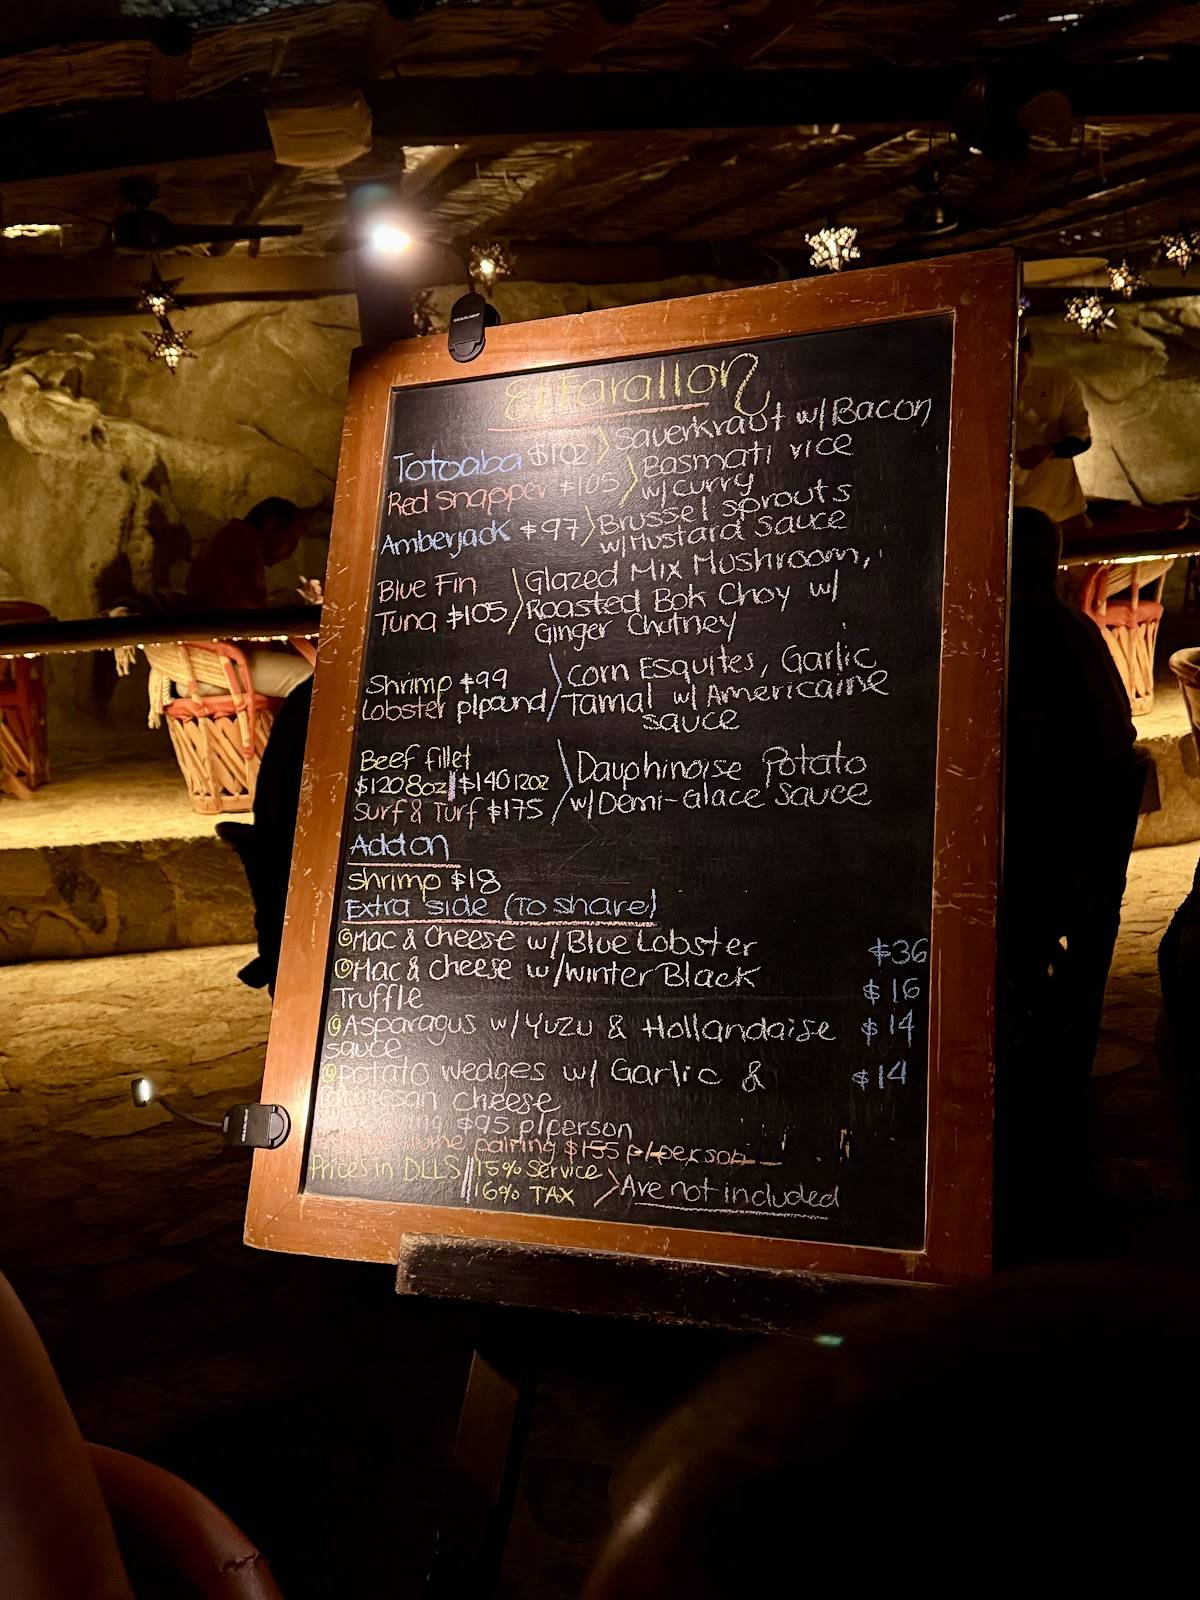 El Farallon
Totoaba $102 Sauerkraut w/Bacon
Red Snapper $105 Basmati rice
w/curry
Amberjack $97 Brussel sprouts
w/Mustard Sauce
Blue Fin Glazed Mix Mushroom,
Tuna $105 Roasted Bok Choy w/
Ginger Chutney
Shrimp $99 Corn Esquites, Garlic
Lobster p/pound Tamal w/Americaine
sauce
Beef fillet Dauphinoise Potato
$120 8oz | $140 12oz w/Demi-Glace Sauce
Surf & Turf $175
Add on
shrimp $18
Extra side (To share)
Mac & Cheese w/Blue Lobster $36
Mac & Cheese w/Winter Black $16
Truffle
Asparagus w/Yuzu & Hollandaise $14
sauce
potato wedges w/ Garlic & $14
cheese
$95 p/person
pairing $155 p/person
Prices in DLLS // 15% Service
16% TAX Are not included